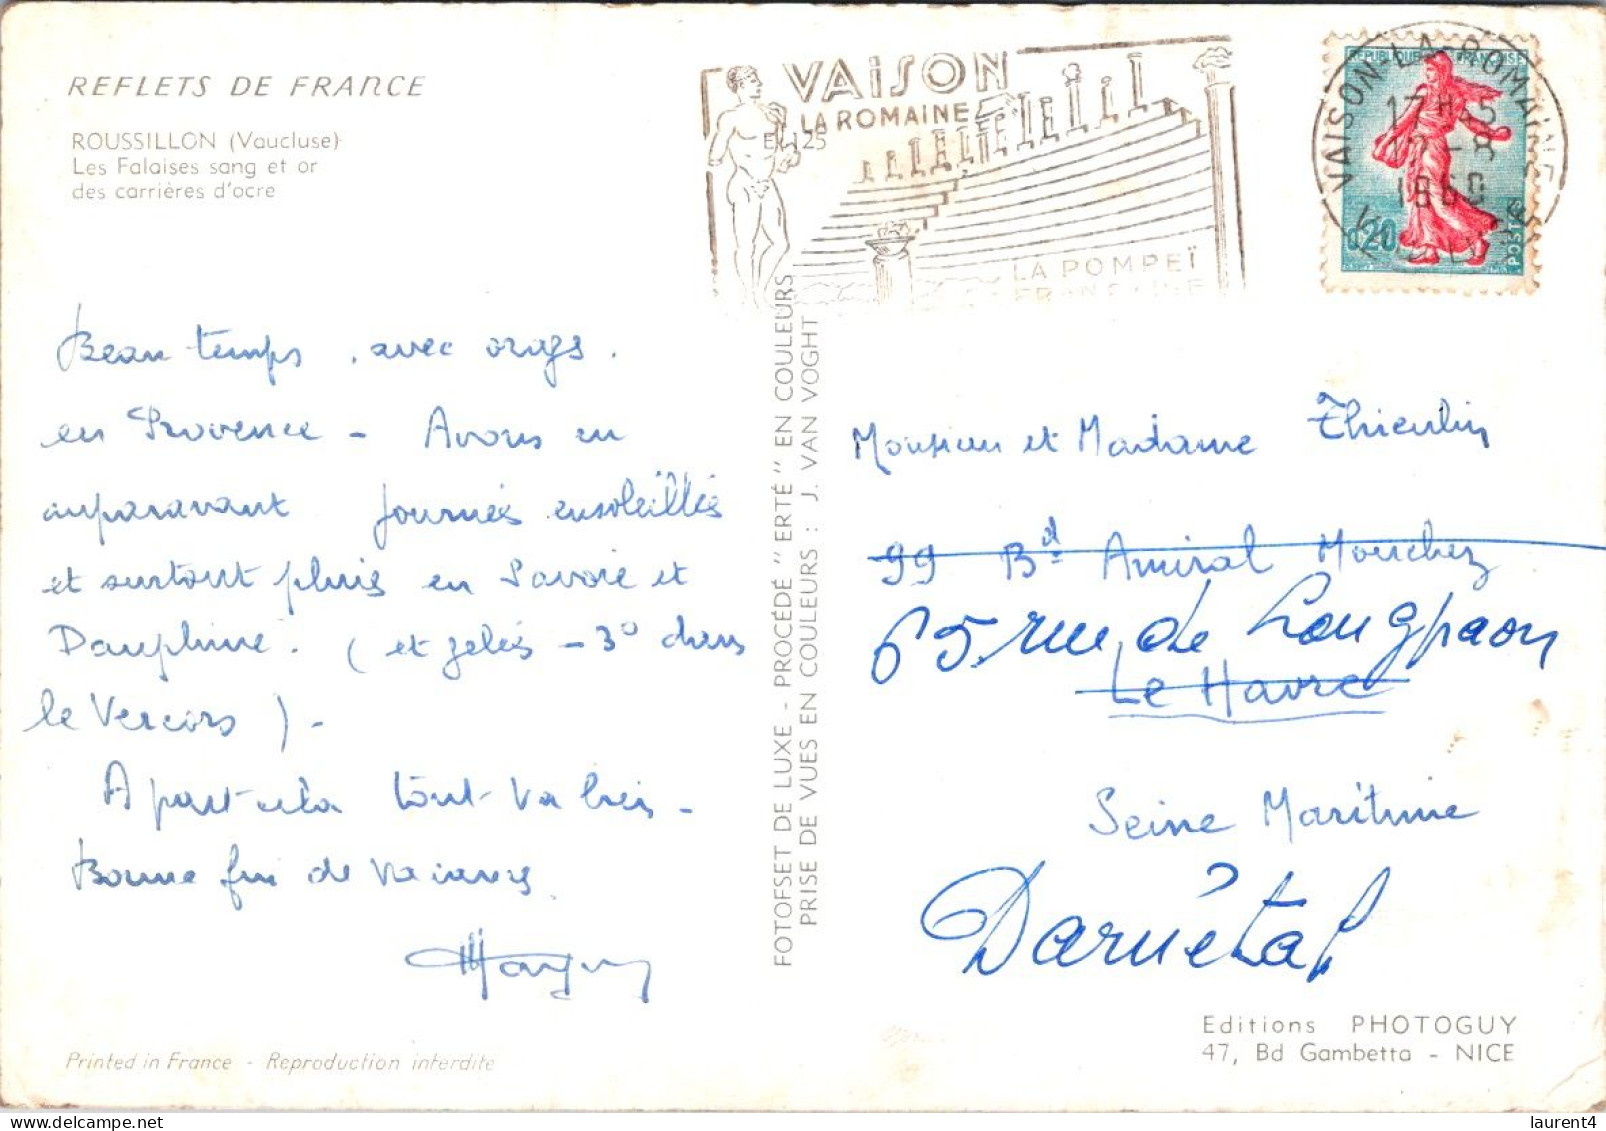 REFLETS DE FRANCE
ROUSSILLON (Vaucluse)
Les Falaises sang et or
des carrières d'ocre
EK 125
VAISON
LA ROMAINE
LA POMPEÏ
FRANÇAISE
REPUBLIQUE FRANÇAISE
0,20
POSTES
VAISON-LA-ROMAINE
17H
-8
1960
VAUCLUSE
Beau temps, avec orages.
en Provence - Avons eu
auparavant journées ensoleillés
et surtout pluie en Savoie et
Dauphiné. (et gelés -3° dans
le Vercors) -
A part cela tout va bien -
Bonne fin de vacances.
Printed in France - Reproduction interdite
FOTOFSET DE LUXE - PROCÉDÉ "ERTÉ" EN COULEURS
PRISE DE VUES EN COULEURS : J. VAN VOGHT
Monsieur et Madame Thieulin
99 Bd Amiral Mouchez
65 rue de Longpaon
Le Havre
Seine Maritime
Darnétal
Editions PHOTOGUY
47, Bd Gambetta - NICE
laurent4